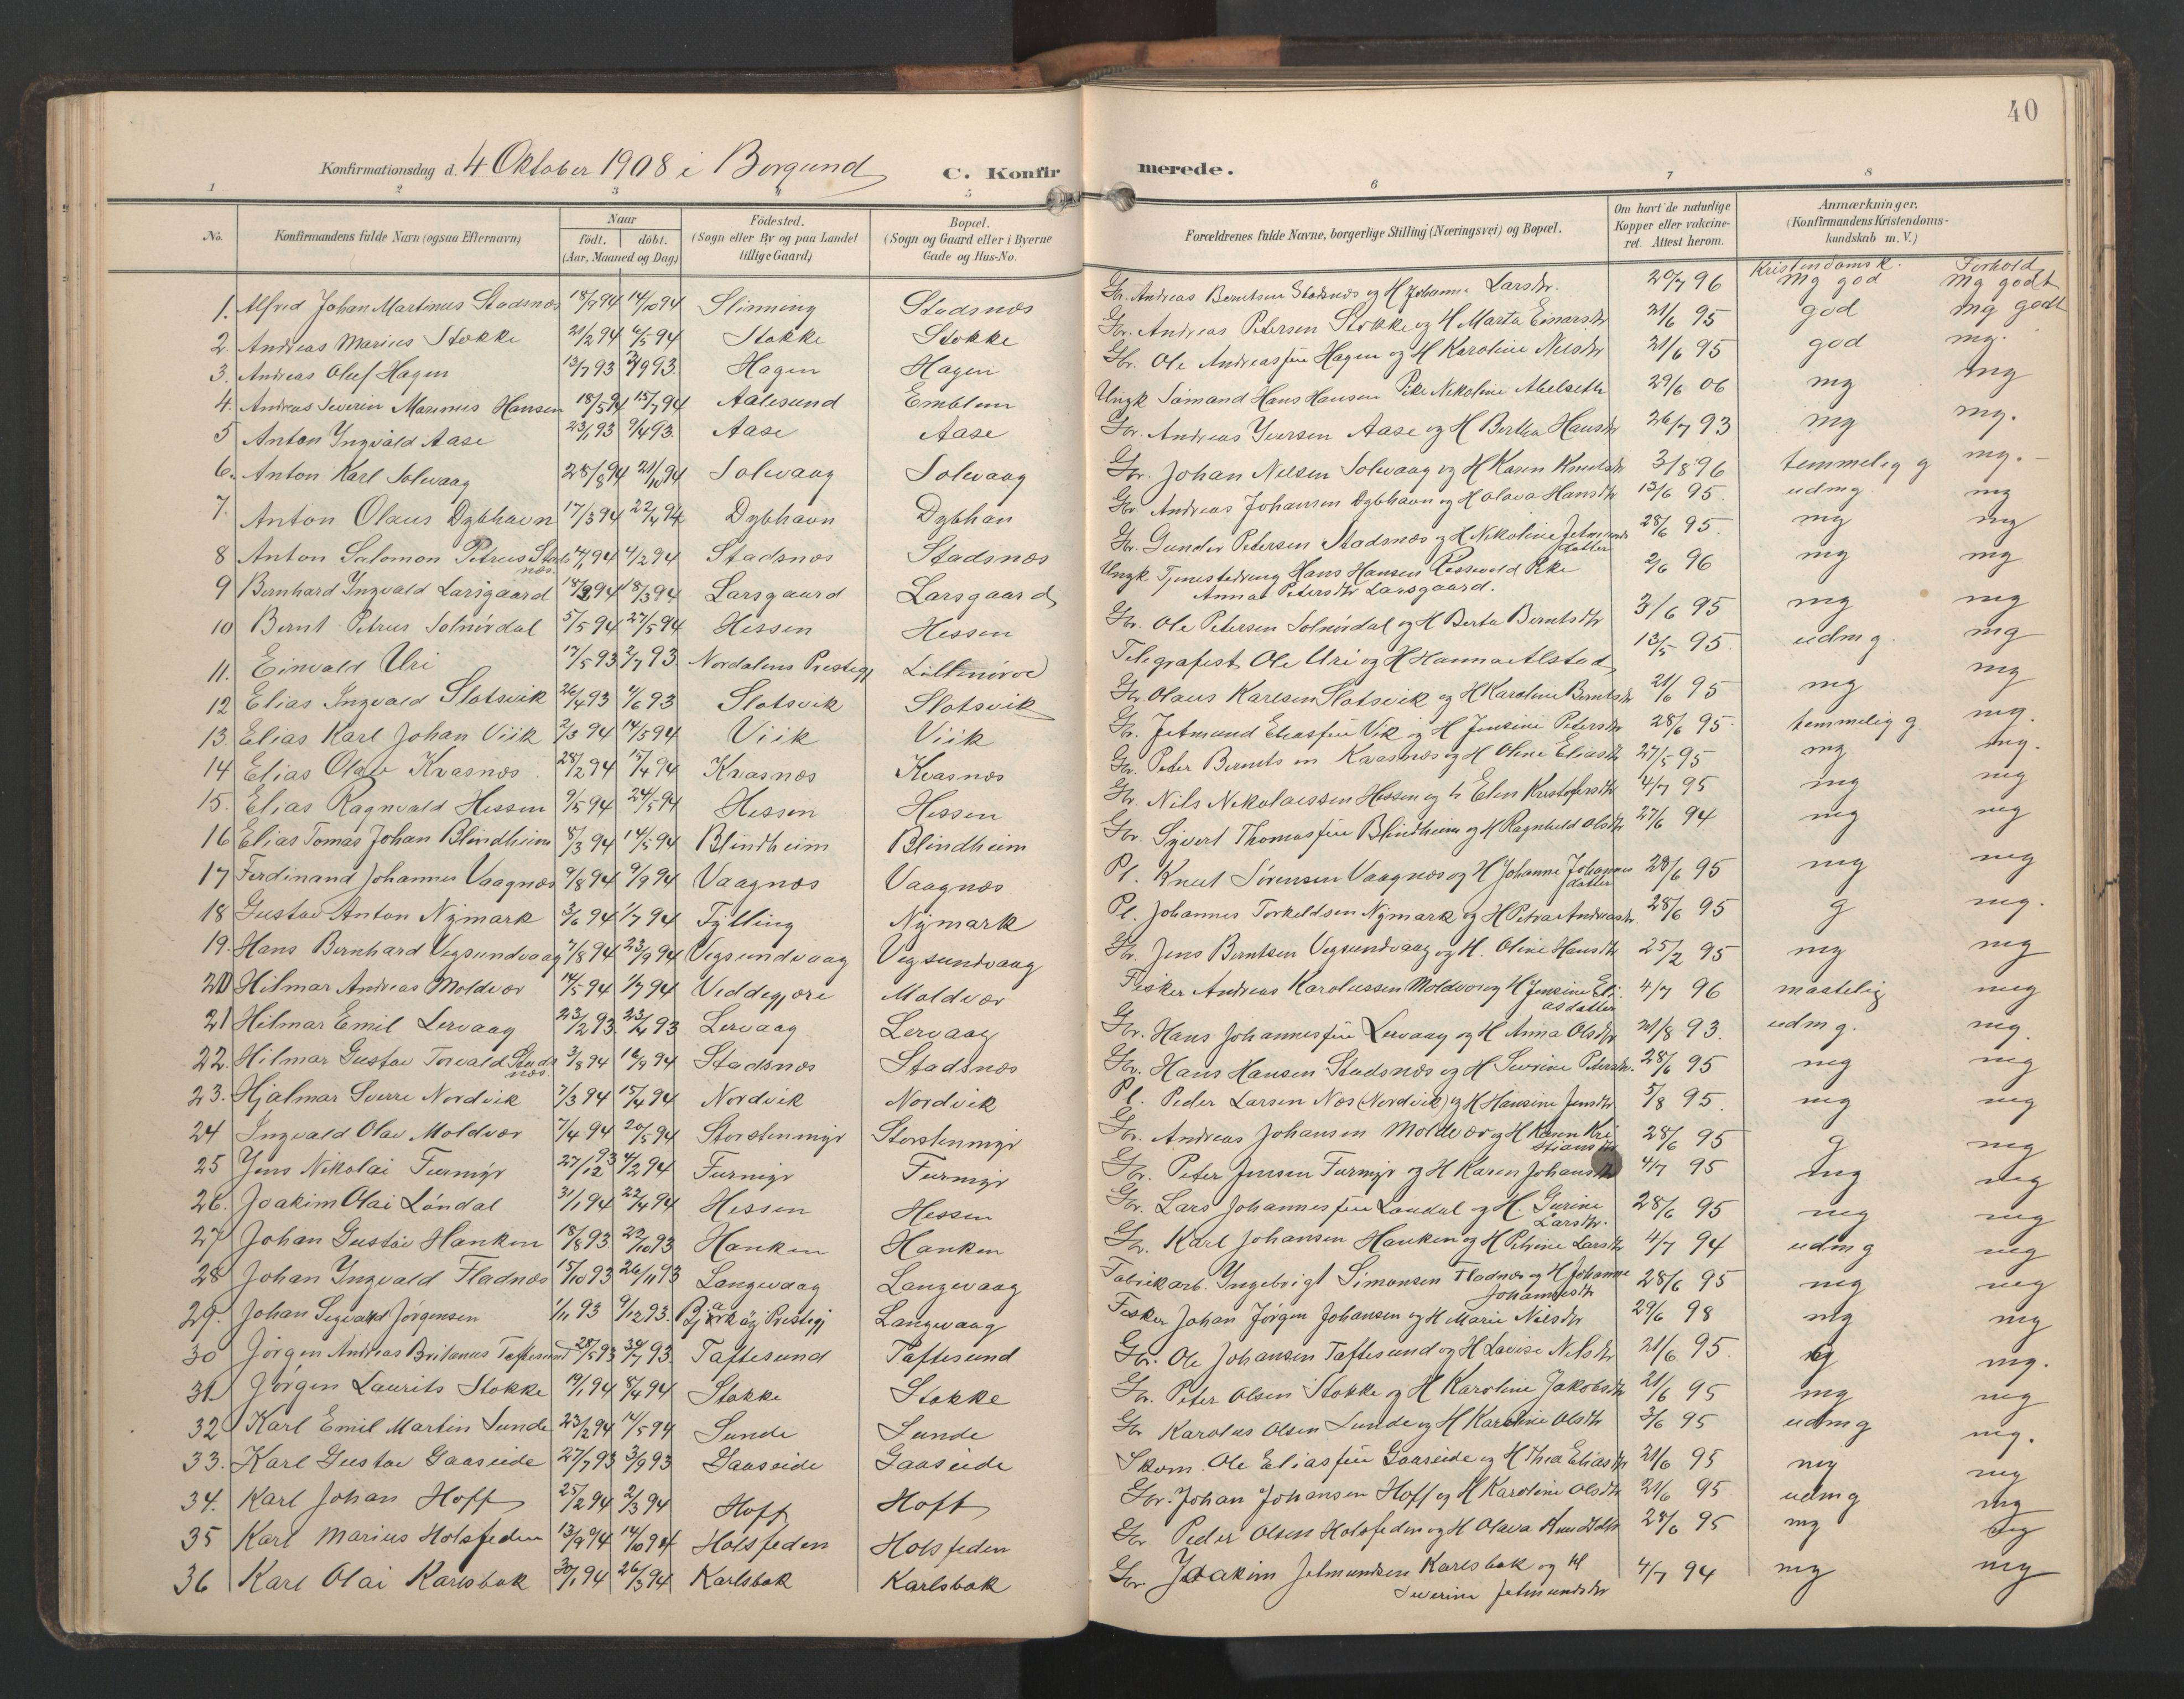 40
Konfirmationsdag d. 4 Oktober 1908 i Borgund C. Konfirmerede.
1 2 3 4 5 6 7 8
No. Konfirmandens fulde Navn (ogsaa Efternavn) Naar födt. döbt. (Aar, Maaned og Dag) Födested. (Sogn eller By og paa Landet tillige Gaard) Bopæl. (Sogn og Gaard eller i Byerne Gade og Hus-No. Forældrenes fulde Navne, borgerlige Stilling (Næringsvei) og Bopæl. Om havt de naturlige Kopper eller vakcineret. Attest herom. Anmærkninger. (Konfirmandens Kristendomskundskab m. V.)
Kristendomsk. Forhold
1. Alfred Johan Martinus Stadsnæs 18/9 94 14/10 94 Slinning Stadsnæs Gbr. Andreas Berntsen Stadsnæs og H Johanne Larsdtr. 20/7 96 mg god mg godt
2. Andreas Marius Stokke 21/2 94 6/5 94 Stokke Stokke Gbr. Andreas Petersen Stokke og H Marta Einarsdtr 21/6 95 god mg godt
3. Andreas Oluf Hagen 13/7 93 3/9 93. Hagen Hagen Gbr. Ole Andreasføn Hagen og H Karoline Nilsdtr 21/6 95 god mg.
4. Andreas Severin Marinus Hansen 18/5 94 15/7 94 Aalesund Emblem Ungk Sømand Hans Hansen Pike Nikoline Abelseth 29/6 06 mg mg
5 Anton Ingvald Aase 23/1 93 9/4 93. Aase Aase Gbr. Andreas Iversen Aase og H Bertha Hansdtr 26/7 93 mg mg.
6. Anton Karl Solevaag 28/8 94 21/10 94 Solevaag Solevaag Gbr. Johan Nilsen Solevaag og H Karen Knutsdtr 3/8 96 temmelig g mg.
7. Anton Olaus Dybhavn 17/3 94 22/4 94 Dybhavn Dybhan Gbr. Andreas Johansen Dybhavn og H Olava Hansdtr 13/6 95. udmg mg
8 Anton Salomon Petrus Stadsnæs. 4/2 94 Stadsnæs Stadsnæs Gbr. Gunder Petersen Stadsnæs og H Nikoline Jetmundsdatter 28/6 95. mg mg
9 Bernhard Ingvald Larsgaard 18/2 94 18/3 94 Larsgaard Larsgaard Ungk Tjenestedreng Hans Hansen Pike Anna Petersdtr Larsgaard. 2/6 96 mg mg
10 Bernt Petrus Solnørdal 5/5 94 27/5 94 Hessen Hessen Gbr. Ole Petersen Solnørdal og H Berta Berntsdtr 3/6 95 mg mg
11. Einvald Uri 17/5 93 2/7 93. Nordalens Prestegj Lillenørve Telegrafist Ole Uri og H Hanna Alstad 13/5 95. udmg. mg
12 Elias Ingvald Slotsvik 26/4 93 4/6 93 Slotsvik Slotsvik Gbr. Olaus Karlsen Slotsvik og H Karoline Berntsdtr 21/6 95 mg mg
13. Elias Karl Johan Viik 2/3 94 14/5 94 Viik Viik Gbr. Jetmund Eliasføn Vik og H Jensine Petersdtr 28/6 95. temmelig g. mg.
14 Elias Olav Kvasnæs 28/2 94 15/4 94 Kvasnæs Kvasnæs Gbr. Peter Berntsen Kvasnæs og H Oline Eliasdtr 27/5 95 mg mg.
15. Elias Ragnvald Hessen 9/5 94 24/5 94 Hessen Hessen Gbr. Nils Nikolaissen Hessen og H Elen Kristofersdtr 4/7 95 mg mg
16 Elias Tomas Johan Blindheim 8/3 94 14/5 94 Blindheim Blindheim Gbr. Sivert Thomasføn Blindheim og H Ragnhild Olsdtr 27/6 94 mg mg
17 Ferdinand Johannes Vaagnæs 9/8 94 9/9 94 Vaagnæs Vaagnæs Pl. Knut Sørensen Vaagnæs og H Johanne Johannesdatter 28/6 95 mg mg
18 Gustav Anton Nymark 3/6 94 1/7 94 Fylling Nymark Pl. Johannes Torkeldsen Nymark og H Petra Andreasdtr. 28/6 95 g mg.
19. Hans Bernhard Vegsundvaag 7/8 94 23/9 94 Vegsundvaag Vegsundvaag Gbr. Jens Berntsen Vegsundvaag og H. Oline Hansdtr 25/2 95 mg mg
20 Hilmar Andreas Moldvær 14/5 94 1/7 94 Veddegjære Moldvær Fisker Andreas Karolussen Moldvær og H Jensine Eliasdatter 4/7 96 maatelig mg
21 Hilmar Emil Lervaag 23/2 93. 23/4 93 Lervaag Lervaag Gbr. Hans Johannesføn Lervaag og H Anna Olsdtr 21/8 93. udmg. mg.
22. Hilmar Gustav Torvald Stadsnæs. 3/8 94 16/9 94 Stadsnæs Stadsnæs Gbr. Hans Hansen Stadsnæs og H Severine Petersdtr. 28/6 95 mg mg
23. Hjalmar Sverre Nordvik 7/3 94 15/4 94 Nordvik Nordvik Pl. Peder Larsen Næs (Nordvik) og H Hansine Jensdtr 5/8 95. mg mg
24 Ingvald Olav Moldvær 7/4 94 20/5 94 Storstenmyr Storstenmyr Gbr. Andreas Johansen Moldvær og H Karen Kristiansdtr 28/6 95 g mg
25 Jens Nikolai Furmyr 27/12 93 4/2 94 Furmyr Furmyr Gbr. Peter Jensen Furmyr og H Karen Johansdtr 4/7 95 mg mg
26. Joakim Olai Løndal 31/1 94 22/4 94 Hessen Hessen Gbr. Lars Johannesføn Løndal og H. Gurine Larsdtr. 28/6 95 mg mg
27 Johan Gustav Hanken 18/8 93 22/10 93 Hanken Hanken Gbr. Karl Johansen Hanken og H Petrine Larsdtr 4/7 94 udmg mg
28 Johan Ingvald Fladnæs 15/10 93 26/11 93 Langevaag Langevaag Fabrikarb. Ingebrigt Simonsen Fladnæs og H Johanne Johannesdtr 28/6 95 mg mg
29. Johan Segvald Jørgensen 1/11 93 9/12 93. Bjarkøy Prestegj Langevaag Fisker Johan Jørgen Johansen og H Marie Nilsdtr 29/6 98 mg mg
30 Jørgen Andreas Britanus Taftesund 28/5 93 30/7 93. Taftesund Taftesund Gbr. Ole Johansen Taftesund og H Lovise Nilsdtr 21/6 95. mg.
31. Jørgen Laurits Stokke 19/1 94 8/4 94 Stokke Stokke Gbr. Peter Olsen Stokke og H Karoline Jakobsdtr 21/6 95 mg mg
32 Karl Emil Martin Sunde 23/2 94 14/5 94 Sunde Sunde Gbr Karolus Olsen Sunde og H Karoline Olsdtr 3/6 95 udmg mg.
33. Karl Gustav Gaaseide 27/7 93 3/9 93 Gaaseide Gaaseide Skom. Ole Eliasføn Gaaseide og H Thea Eliasdtr 21/6 95 mg mg
34. Karl Johan Hoff 25/2 94 2/3 94 Hoff Hoff Gbr. Johan Johansen Hoff og H Karoline Olsdtr 21/6 95 udmg mg
35 Karl Marius Holsfeden 13/9 94 14/10 94 Holsfeden Holsfeden Gbr Peder Olsen Holsfeden og H Olava 28/6 95 mg mg
36 Karl Olai Karlsbak 30/1 94 26/3 94 Karlsbak Karlsbak Gbr Joakim Jetmundsen Karlsbak og H Severine Jetmundsdtr 4/7 94 mg mg